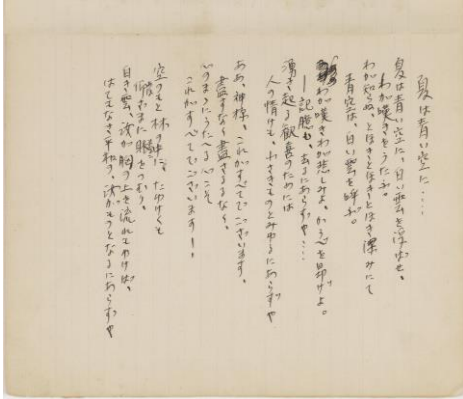 夏は青い空に……
夏は青い空に、白い雲を浮ばせ、
わが嘆きをうたふ。
わが知らぬ、とほきとほきとほき深みにて
青空は、白い雲を呼ぶ。
わが嘆きわが悲しみよ、かうべを昂げよ。
―記憶も、去るにあらずや……
湧き起る歓喜のためには
人の情けも、小さきものとみゆるにあらずや
ああ、神様、これがすべてでございます、
盡すなく盡さるるなく、
心のまゝにうたへる心こそ
これがすべてでございます!
空のもと林の中に、たゆけくも
仰ざまに眼をつむり、
白き雲、汝が胸の上を流れもゆけば、
はてもなき平和の、汝がものとなるにあらずや